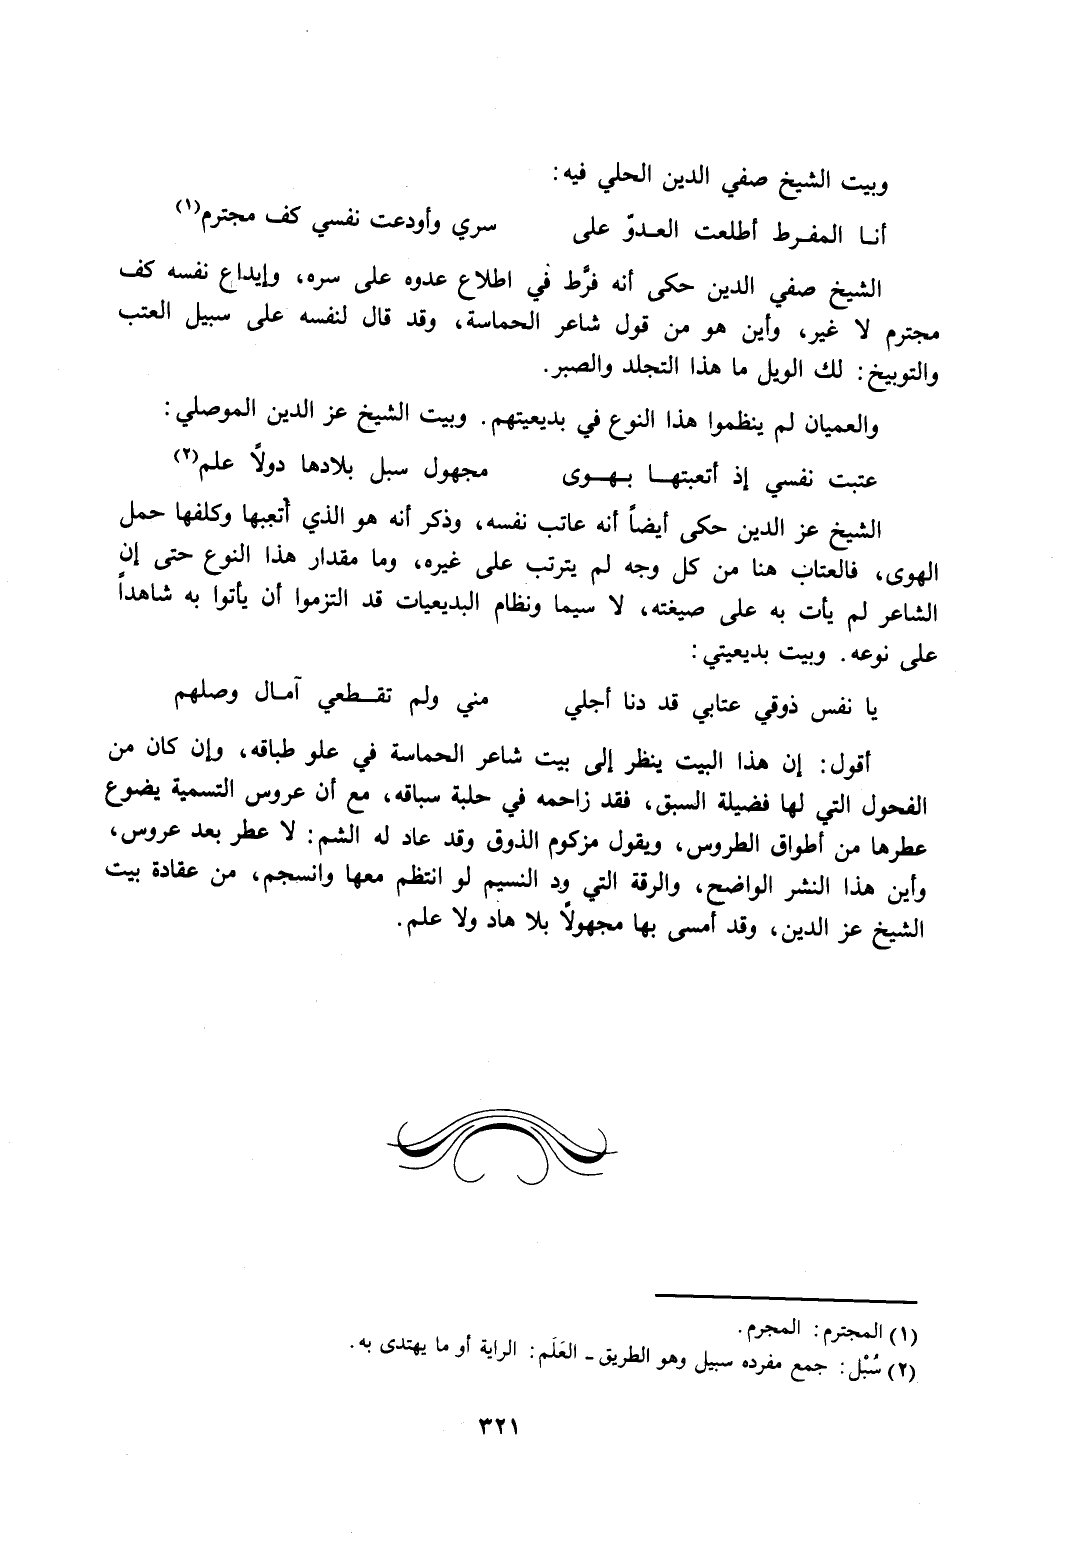 وبيت الشيخ صفي الدين الحلي فيه:
أنا المفرط أطلعت العدوّ على سري وأودعت نفسي كف مجترم(١)
الشيخ صفي الدين حكى أنه فرَّط في اطلاع عدوه على سره، وإيداع نفسه كف
مجترم لا غير، وأين هو من قول شاعر الحماسة، وقد قال لنفسه على سبيل العتب
والتوبيخ: لك الويل ما هذا التجلد والصبر.
والعميان لم ينظموا هذا النوع في بديعيتهم. وبيت الشيخ عز الدين الموصلي:
عتبت نفسي إذ أتعبتها بهوى مجهول سبل بلادها دولاً علم(٢)
الشيخ عز الدين حكى أيضاً أنه عاتب نفسه، وذكر أنه هو الذي أتعبها وكلفها حمل
الهوى، فالعتاب هنا من كل وجه لم يترتب على غيره، وما مقدار هذا النوع حتى إن
الشاعر لم يأت به على صيغته، لا سيما ونظام البديعيات قد التزموا أن يأتوا به شاهداً
على نوعه. وبيت بديعيتي:
يا نفس ذوقي عتابي قد دنا أجلي مني ولم تقطعي آمال وصلهم
أقول: إن هذا البيت ينظر إلى بيت شاعر الحماسة في علو طباقه، وإن كان من
الفحول التي لها فضيلة السبق، فقد زاحمه في حلبة سباقه، مع أن عروس التسمية يضوع
عطرها من أطواق الطروس، ويقول مزكوم الذوق وقد عاد له الشم: لا عطر بعد عروس،
وأين هذا النشر الواضح، والرقة التي ود النسيم لو انتظم معها وانسجم، من عقادة بيت
الشيخ عز الدين، وقد أمسى بها مجهولاً بلا هاد ولا علم.
(١) المجترم: المجرم.
(٢) سُبْل: جمع مفرده سبيل وهو الطريق - العَلَم: الراية أو ما يهتدى به.
٣٢١